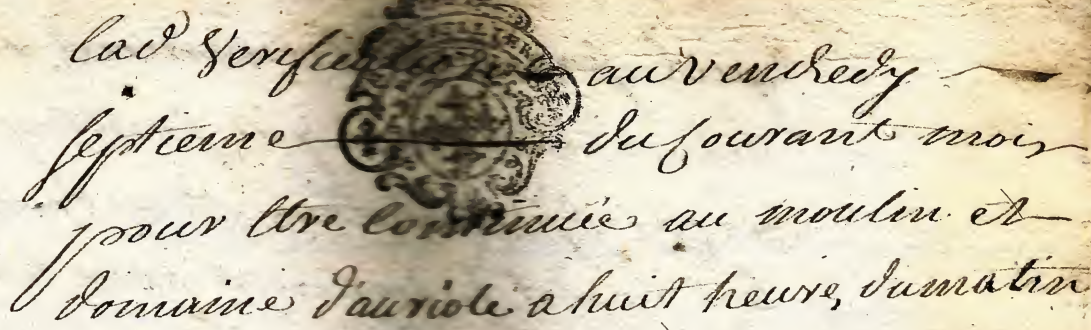 lad verification au vendredy
septieme du courant mois
pour etre continuée au moulin et
domaine d'auriole a huit heures du matin